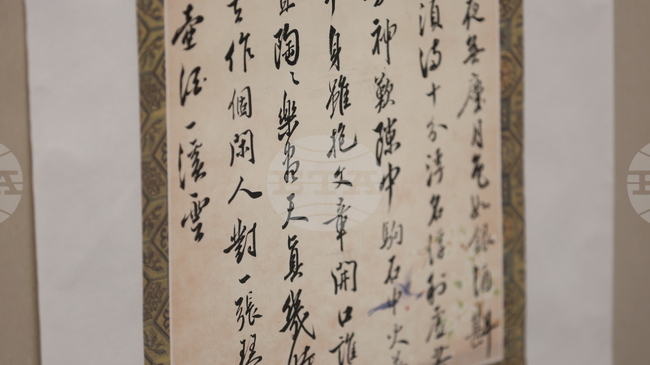 夜無塵月色如銀酒斟
須滿十分浮名浮利虛苦
神歎隙中駒石中火
中身雖抱文章開口誰
且陶々樂盡天真幾時
去作個閑人對一張琴
壺酒一溪雲
БТА